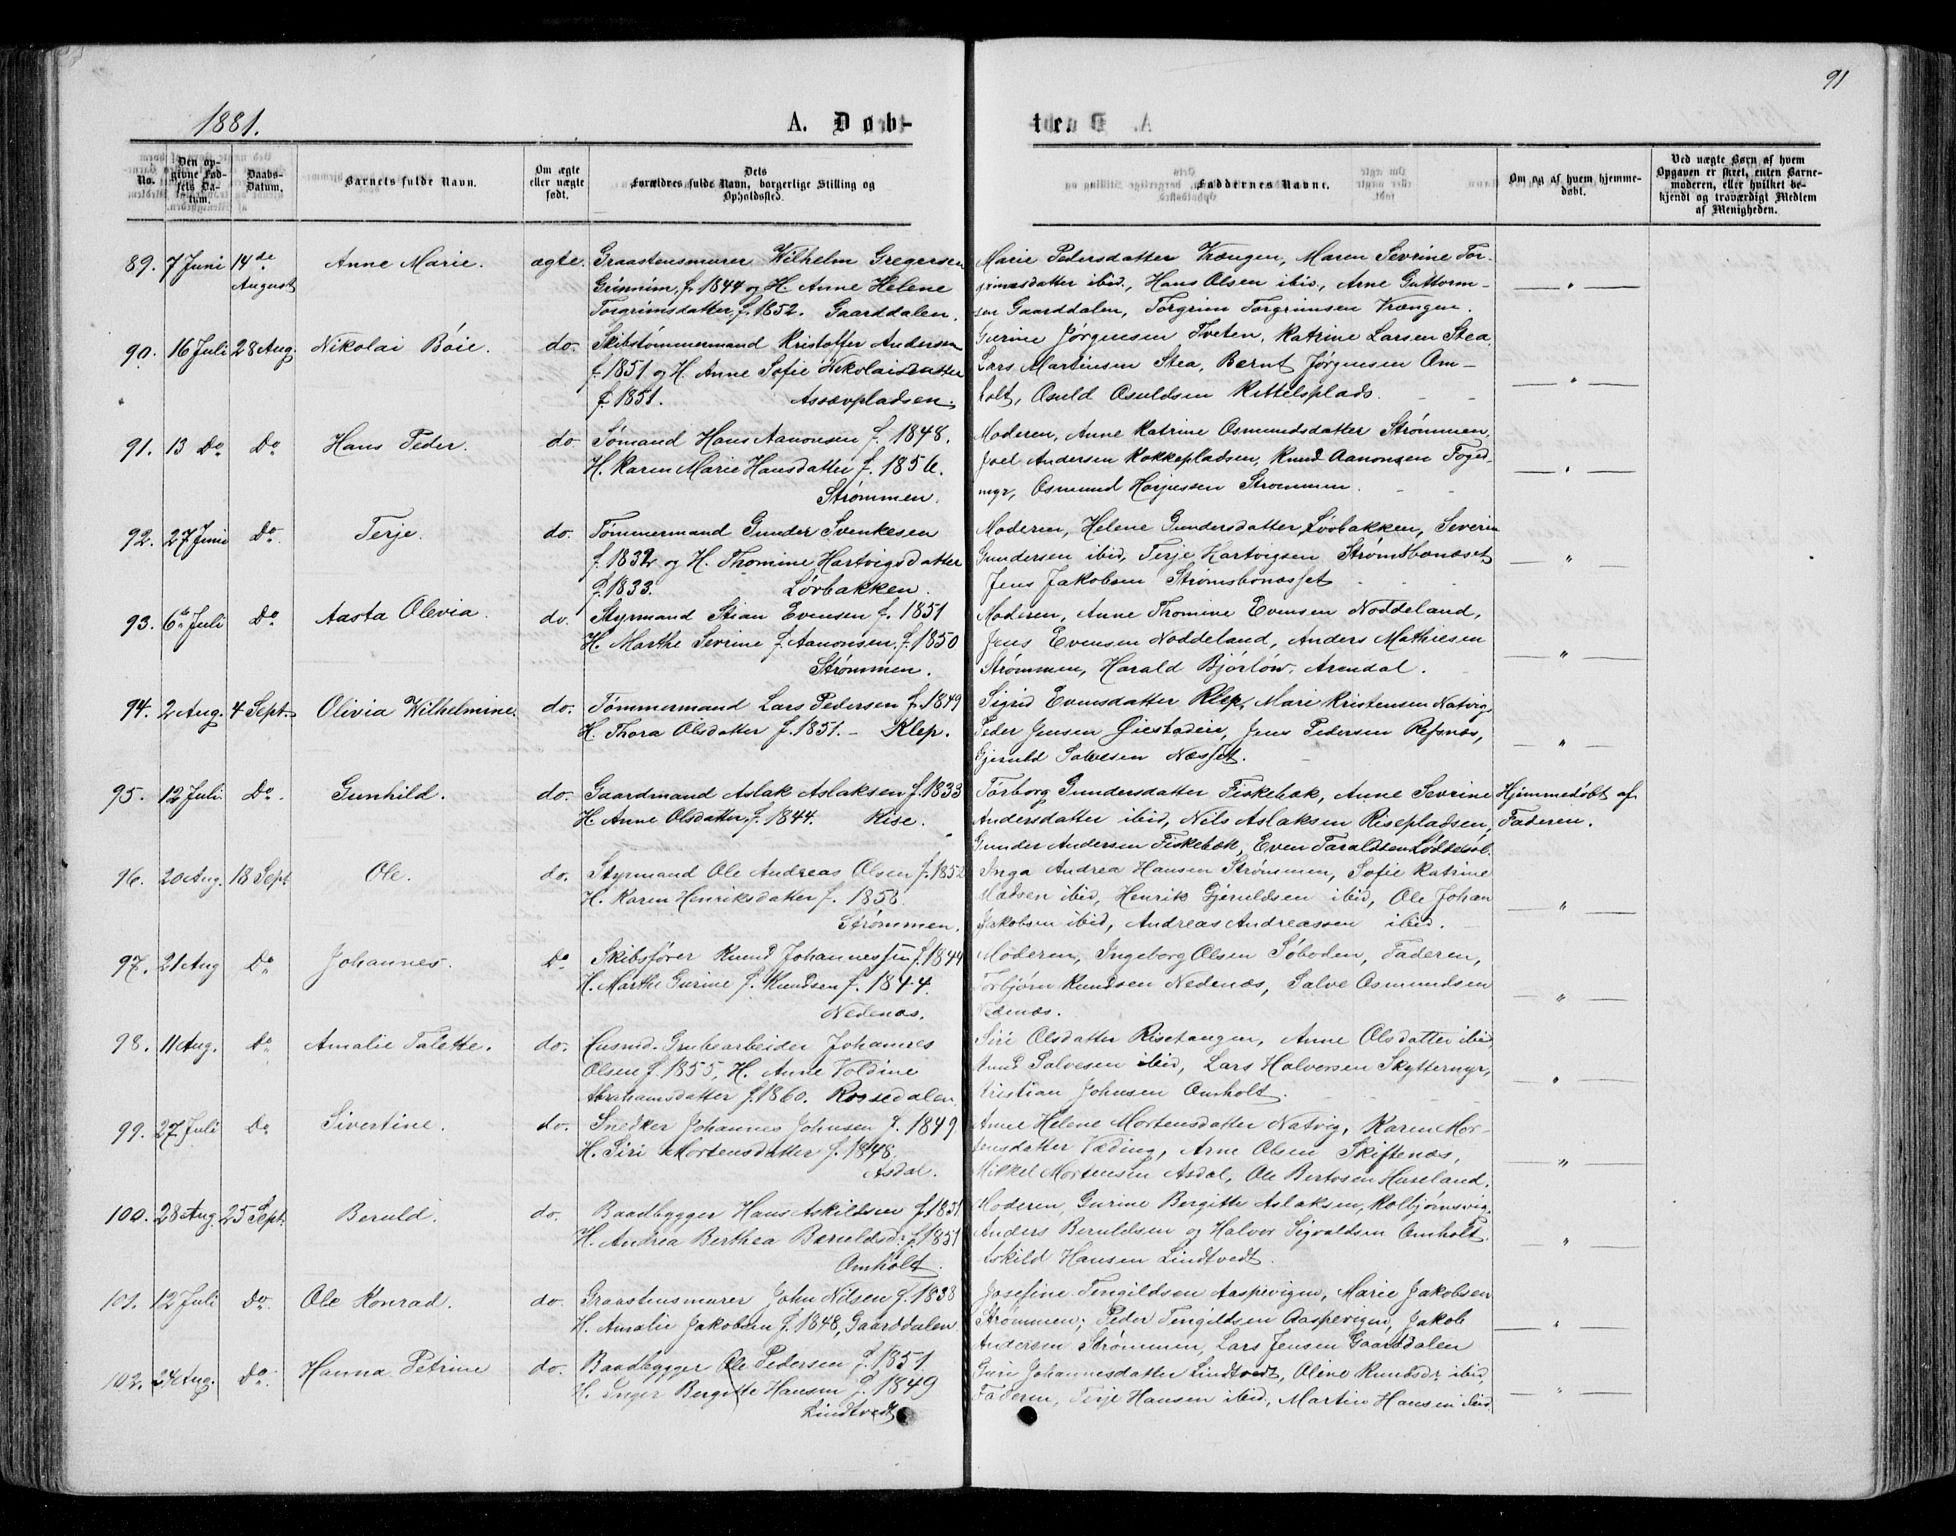 91
1881.
A. Døb-
te.
No.
Den opgivne Fødsels Datum.
Daabs-Datum.
Barnets fulde Navn.
Om ægte eller uægte født.
Dets Forældres fulde Navn, borgerlige Stilling og Opholdssted.
Faddernes Navne.
Om og af hvem hjemmedøbt.
Ved uægte Børn af hvem Opgaven er skeet, enten Barnemoderen, eller hvilket bekjendt og troværdigt Medlem af Menigheden.
89. 7 Juni 14de August Anne Marie. ægte. Graastensmurer Wilhelm Gregersen
Grimnim, f. 1844 og H. Anne Helene
Torgrimsdatter, f. 1852. Gaarddalen.
Marie Pedersdatter Vrængen, Maren Sevrine Tor-
grimsdatter ibid, Hans Olsen ibid, Arne Guttorm-
sen Gaarddalen, Torgrim Torgrimsen Vrængen.
— " —
90. 16 Juli 28 Aug. Nikolai Böie. do. Skibstømmermand Kristoffer Andersen
f. 1851 og H. Anne Sofie Nikolaisdatter
f. 1851. Assævpladsen.
Gurine Jørgensen Tveten, Katrine Larsen Stea,
Lars Martinsen Stea, Bernt Jørgensen Om-
holt, Osuld Osuldsen Kittelsplads.
— " —
91. 13 Do Do Hans Peder. do Sømand Hans Aanonsen f. 1848.
H. Karen Marie Hansdatter f. 1856.
Strømmen.
Moderen, Anne Katrine Osmundsdatter Strømmen,
Joel Andersen Kokkepladsen, Knud Aanonsen Foged-
myr, Osmund Strømmen.
— " —
92. 27 Juni Do. Terje. do. Tømmermand Gunder Svenkesen
f. 1832 og H. Thomine Hartvigsdatter
f. 1833. Løvbakken.
Moderen, Helene Gundersdatter, Løvbakken, Severin
Gundersen ibid, Terje Hartvigsen Strømsbonæset
Jens Jakobsen Strømsbonæsset.
— " —
93. 6te Juli Do Aasta Olevia. do. Styrmand Stian Evensen f. 1851
H. Marthe Sevrine f. Aanonsen, f. 1850
Strømmen.
Moderen, Anne Thomine Evensen Noddeland,
Jens Evensen Noddeland, Anders Mathiesen
Strømmen, Harald Bjørlow, Arendal.
— " —
94. 2 Aug. 4 Sept. Olivia Wilhelmine. do. Tømmermand Lars Pedersen f. 1849
H. Thora Olsdatter f. 1851. – Klep.
Sigrid Evensdatter Klep, Mari Kristensen Natvig,
Peder Jensen Jens Pedersen Refsnæs,
Gjeruld Salvesen Næsset.
— " —
95. 12 Juli. Do. Gunhild. do. Gaardmand Aslak Aslaksen f. 1833
H. Anne Olsdatter, f. 1844. Rise.
Torborg Gundersdatter Fiskebæk, Anne Sevrine
Andersdatter ibid, Nils Aslaksen Risepladsen,
Gunder Andersen Fiskebæk, Even Taraldsen Løddesøl.
Hjemmedøbt af
Faderen.
96. 20 Aug. 18 Sept Ole. do. Styrmand Ole Andreas Olsen f. 1852
H. Karen Henriksdatter f. 1858.
Strømmen.
Inga Andrea Hansen Strømmen, Sofie Katrine
Madsen ibid, Henrik Gjeruldsen ibid, Ole Johan
Jakobsen ibid, Andreas Andreassen ibid.
— " —
97. 21 Aug Do Johannes. Do Skibsfører Knud Johannessen f. 1844
H. Marthe Gurine f. Knudsen f. 1844.
Nedenæs.
Moderen, Ingeborg Olsen Søboden, Faderen,
Torbjørn Knudsen Nedenæs, Salve Osmundsen
Nedenæs.
— " —
98. 11 Aug. Do Amalie Talette. do. Husmd. Grubearbeider Johannes
Olsen f. 1855, H. Anne Voldine
Abrahamsdatter f. 1860. Rossedalen.
Siri Olsdatter Risetangen, Anne Olsdatter ibid,
Salvesen ibid, Lars Halvorsen Skyttemyr,
Kristian Johnsen Omholt.
— " —
99. 27 Juli Do Sivertine. do. Snedker Johannes Johnsen f. 1849
H. Siri Mortensdatter f. 1848.
Asdal.
Anne Helene Mortensdatter Natvig, Karen Mor-
tensdatter Væding, Arne Olsen Skiftenæs,
Mikkel Mortensen Asdal, Ole Bertosen Huseland.
— " —
100. 28 Aug. 25 Sept. Beruld. do. Baadbygger Hans Askildsen f. 1851
H. Andrea Berthea Beruldsd: f. 1851
Omholt.
Moderen, Gurine Bergitte Aslaksen, Kolbjørnsvig,
Anders Beruldsen og Halvor Sigvaldsen Omholt.
Askild Hansen Lindtvedt.
— " —
101. 12 Juli Do. Ole Konrad. do. Graastensmurer John Nilsen f. 1838
H. Amalie Jakobsen f. 1848, Gaarddalen.
Josefine Tengildsen Aaspevigen, Marie Jakobsen
Strømmen; Peder Tengildsen Aaspevigen, Jakob
Andersen Strømmen, Lars Jensen Gaarddalen
— " —
102. 24 Aug. Do. Hanna Petrine do. Baadbygger Ole Pedersen f. 1851.
H. Inger Bergitte Hansen f. 1849
Lindtvedt
Guri Johannesdatter Lindtvedt, Oline Knudsdr ibid,
Faderen, Terje Hansen ibid, Martin Hansen ibid
— " —